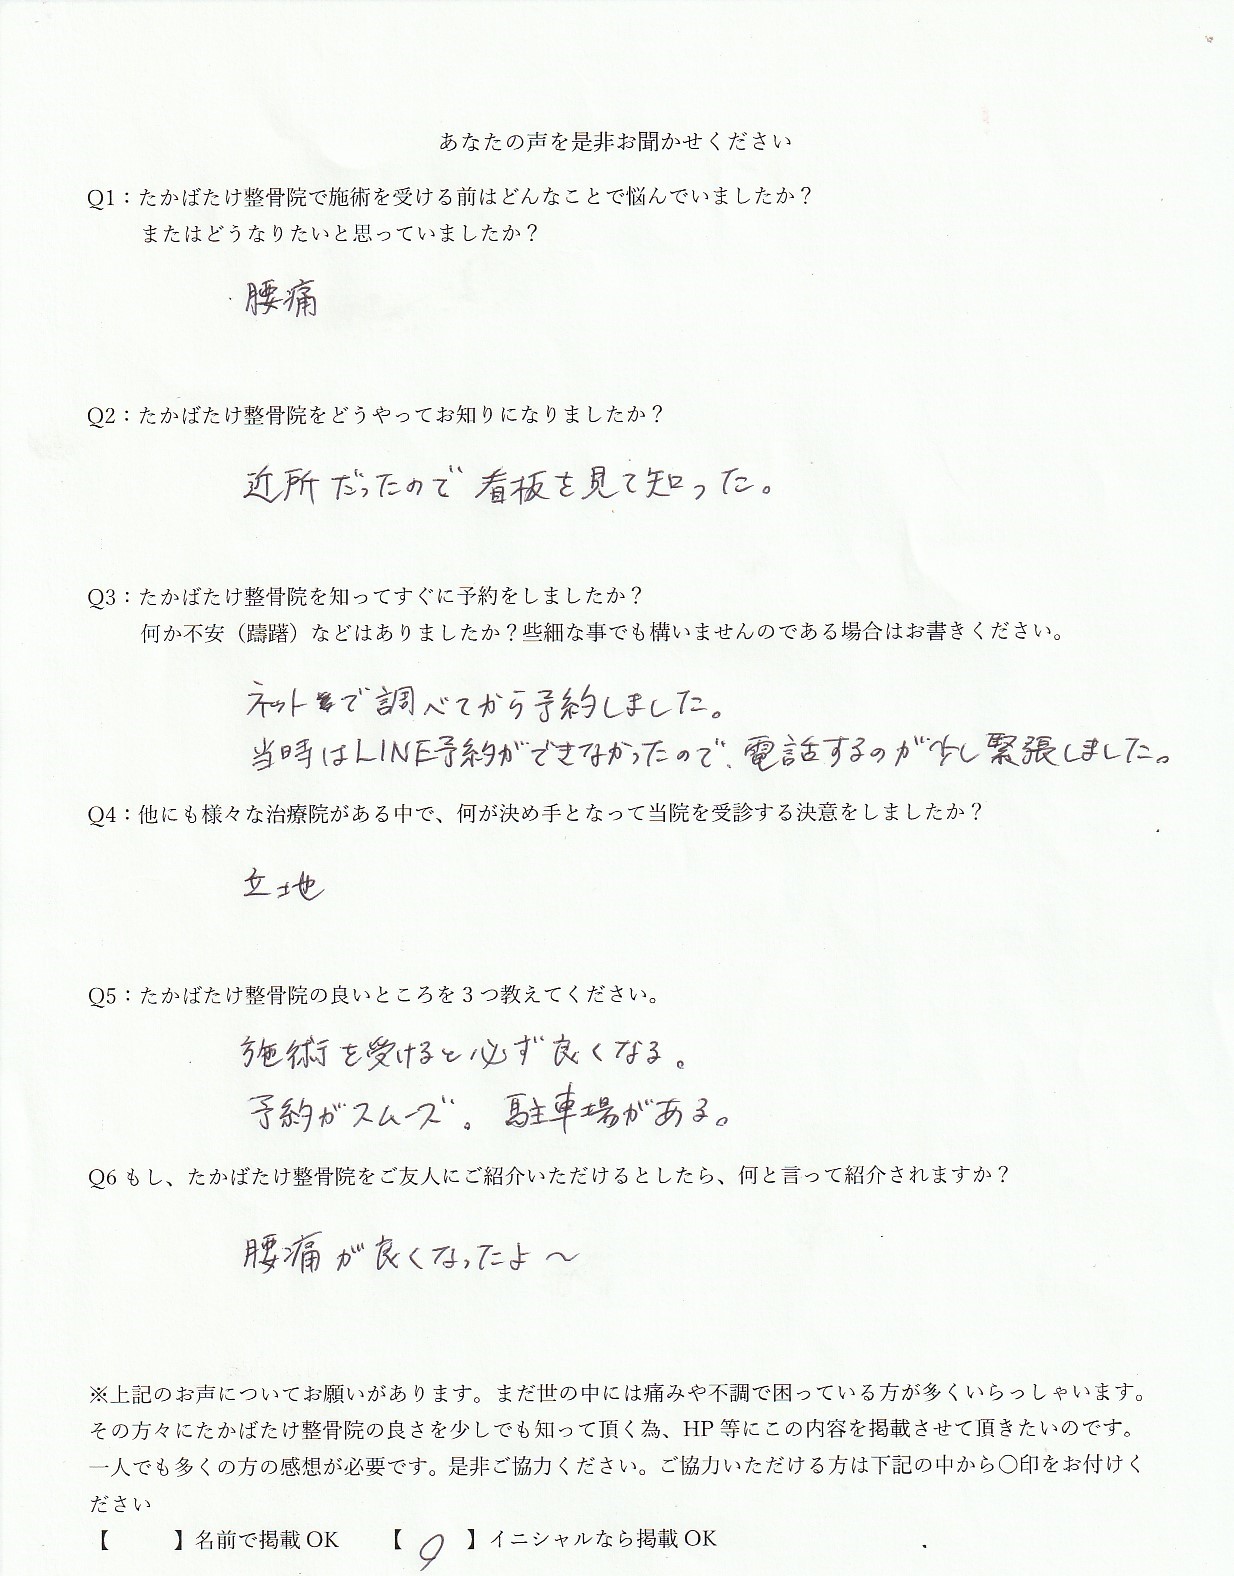 あなたの声を是非お聞かせください
Q1：たかばたけ整骨院で施術を受ける前はどんなことで悩んでいましたか？
またはどうなりたいと思っていましたか？
腰痛
Q2：たかばたけ整骨院をどうやってお知りになりましたか？
近所だったので看板を見て知った。
Q3：たかばたけ整骨院を知ってすぐに予約をしましたか？
何か不安（躊躇）などはありましたか？些細な事でも構いませんのである場合はお書きください。
ネットで調べてから予約しました。
当時はLINE予約ができなかったので、電話するのが少し緊張しました。
Q4：他にも様々な治療院がある中で、何が決め手となって当院を受診する決意をしましたか？
立地
Q5：たかばたけ整骨院の良いところを3つ教えてください。
施術を受けると必ず良くなる。
予約がスムーズ。駐車場がある。
Q6もし、たかばたけ整骨院をご友人にご紹介いただけるとしたら、何と言って紹介されますか？
腰痛が良くなったよ～
※上記のお声についてお願いがあります。まだ世の中には痛みや不調で困っている方が多くいらっしゃいます。
その方々にたかばたけ整骨院の良さを少しでも知って頂く為、HP等にこの内容を掲載させて頂きたいのです。
一人でも多くの方の感想が必要です。是非ご協力ください。ご協力いただける方は下記の中から〇印をお付けく
ださい
【　　】名前で掲載OK　【○】イニシャルなら掲載OK